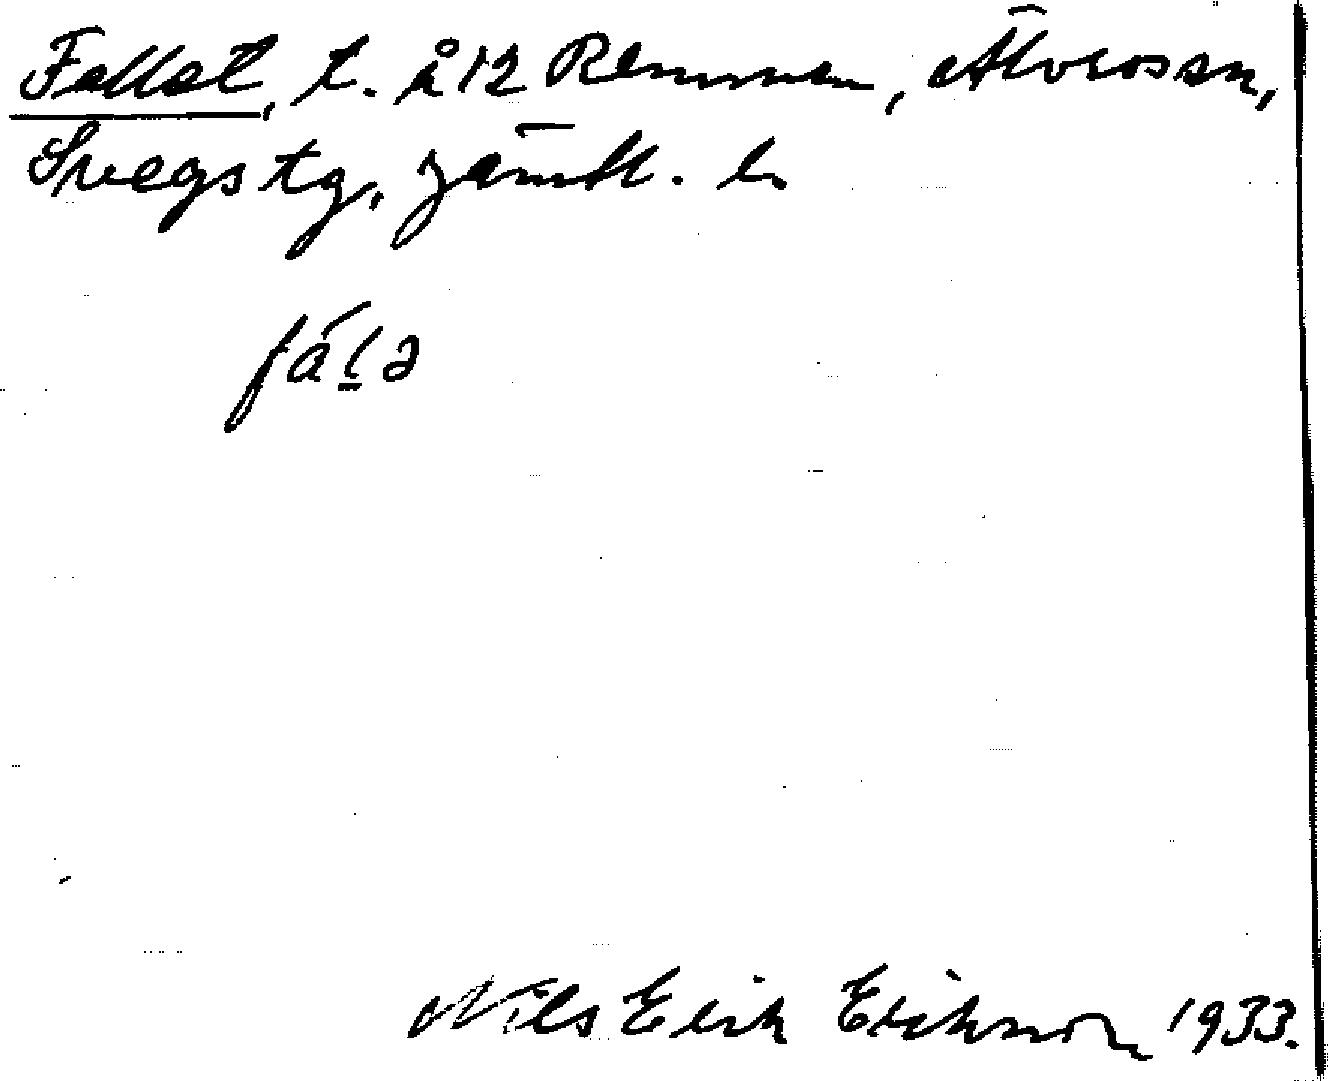 Fallet, t. å 12 Remmen, Älvros sn,
Svegs tg, Jämtl. l.
fàl̲ə
Nils Erik Erikson 1933.